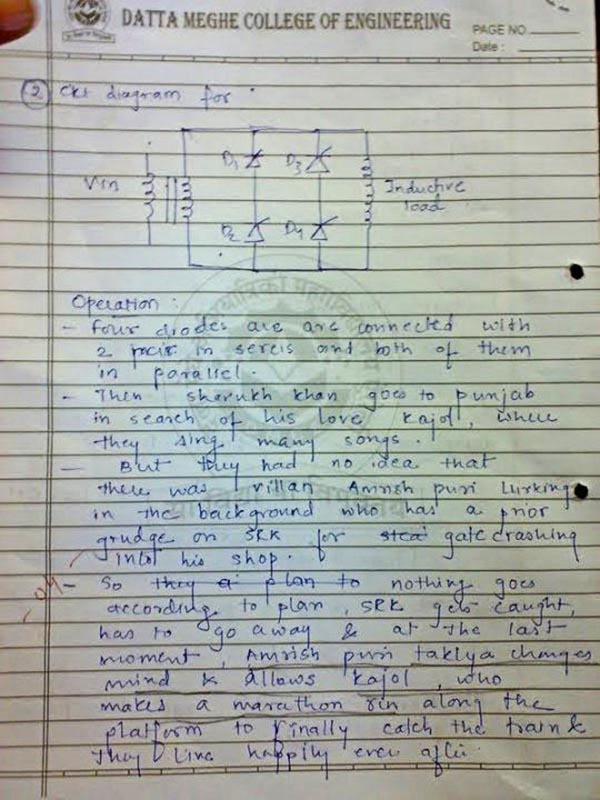 DATTA MEGHE COLLEGE OF ENGINEERING
PAGE NO.
Date :
2 Ckt diagram for
D1 D3
Vin
Inductive
load
D2 D4
Operation :
- Four diodes are are connected with
2 pair in sereis and both of them
in parallel.
- Then sharukh khan goes to punjab
in search of his love kajol, where
they sing many songs.
- But they had no idea that
there was villan Amrish puri lurking
in the background who has a prior
grudge on SRK for stea gate crashing
into his shop.
- So they a plan to nothing goes
according to plan, SRK gets caught,
has to go away & at the last
moment, Amrish puri taklya changes
mind & allows kajol, who
makes a marathon rin along the
platform to finally catch the train &
They live happily ever after.